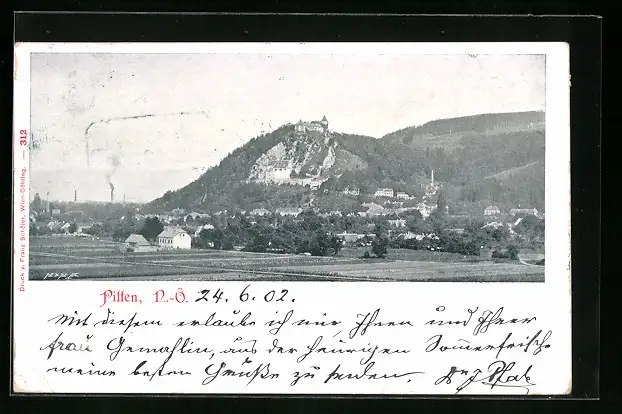 Druck v. Franz Schöler, Wien-Döbling. — 312
Pitten, N.-Ö. 24. 6. 02.
Mit diesem erlaube ich mir, Ihnen und Ihrer
frau Gemahlin, aus der heurigen Sommerfrische
meine besten Grüße zu senden.